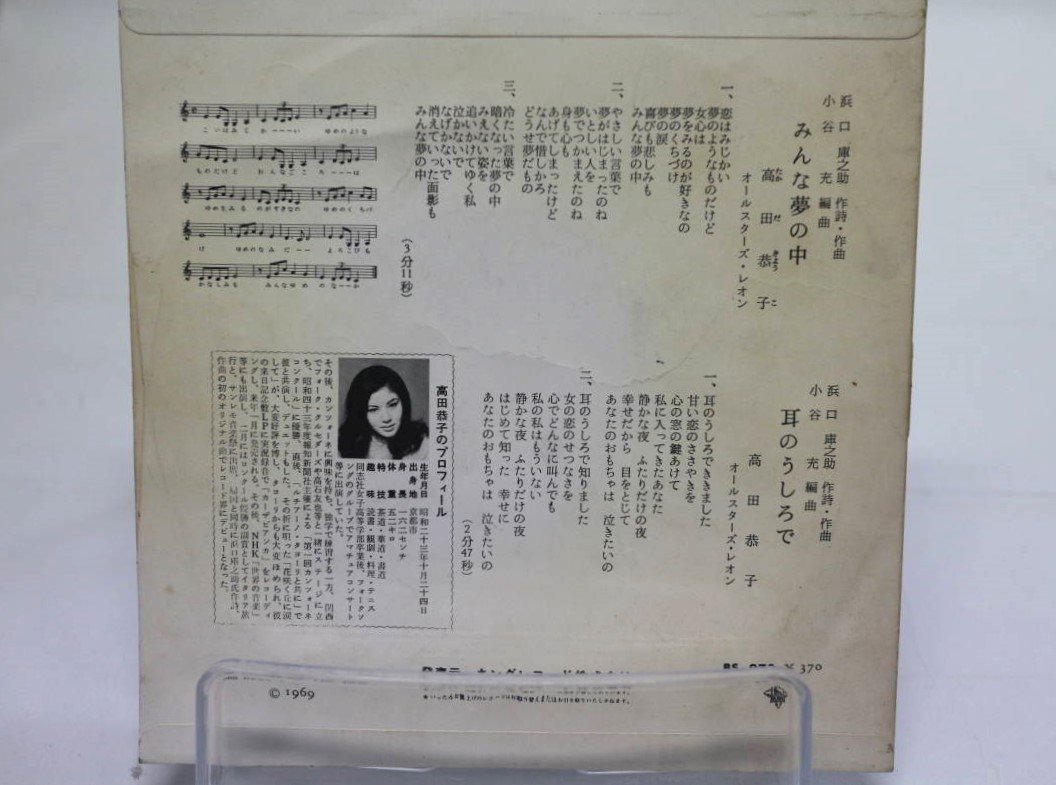 浜口庫之助 作詩・作曲
小谷 充 編曲
みんな夢の中
高田恭子
たか だ きょう こ
オールスターズ・レオン
一、恋はみじかい
夢のようなものだけど
女心は
夢をみるのが好きなの
夢のくちづけ
夢の涙
喜びも悲しみも
みんな夢の中
二、やさしい言葉で
夢がはじまったのね
いとしい人を
夢でつかまえたのね
身も心も
あげてしまったけど
なんで惜しかろ
どうせ夢だもの
三、冷たい言葉で
暗くなった夢の中
みえない姿を
追いかけてゆく私
泣かないで
なげかないで
消えていった面影も
みんな夢の中
(3分11秒)
こいはみじ かーーーい ゆめのような
ものだけど おんなごこ ろーーーは
ゆめをみる のがすきなの ゆめのくちづ
け ゆめのなみ だーー よろこびも
かなしみも みんなゆめ の なーーか
浜口庫之助 作詩・作曲
小谷 充 編曲
耳のうしろで
高田恭子
オールスターズ・レオン
一、耳のうしろでききました
甘い恋のささやきを
心の窓の鍵あけて
私に入ってきたあなた
静かな夜 ふたりだけの夜
幸せだから 目をとじて
あなたのおもちゃは 泣きたいの
二、耳のうしろで知りました
女の恋のせつなさを
心でどんなに叫んでも
私の私はもういない
静かな夜 ふたりだけの夜
はじめて知った 幸せに
あなたのおもちゃは 泣きたいの
(2分47秒)
高田恭子のプロフィール
生年月日 昭和二十三年十月二十四日
出身地 京都市
身長 一六二センチ
体重 五二キロ
特技 茶道・華道・書道
趣味 読書・観劇・料理・テニス
同志社女子高等学部卒業後、フォークソ
ングのグループでアマチュアコンサート
等に出演していた。
その後、カンツォーネに興味を持ち、独学で練習する一方、関西
でフォーク・クルセダーズや高石友也等と一緒にステージに立
ち、昭和四十三年度報知新聞社主催による「第一回カンツォーネ
コンクール」に優勝、直後、「ルチアーノ・タヨーリと共に」で
彼と共演し、デュエットもした。その折に唄った「花咲く丘に涙
して」が、大変好評を博し、タヨーリからも大変ほめられ、彼
の来日記念盤LPに実況録音で「カーザ・ビアンカ」をレコーディ
ングし、来年一月に発売される。その後、NHK「世界の音楽」
等にも出演し、二月にはコンクール優勝の副賞としてイタリア旅
行と、サンレモ音楽祭に出席、帰国と同時に浜口庫之助氏作詩、
作曲の初のオリジナル曲でレコード界にデビューとなった。
¥370
© 1969